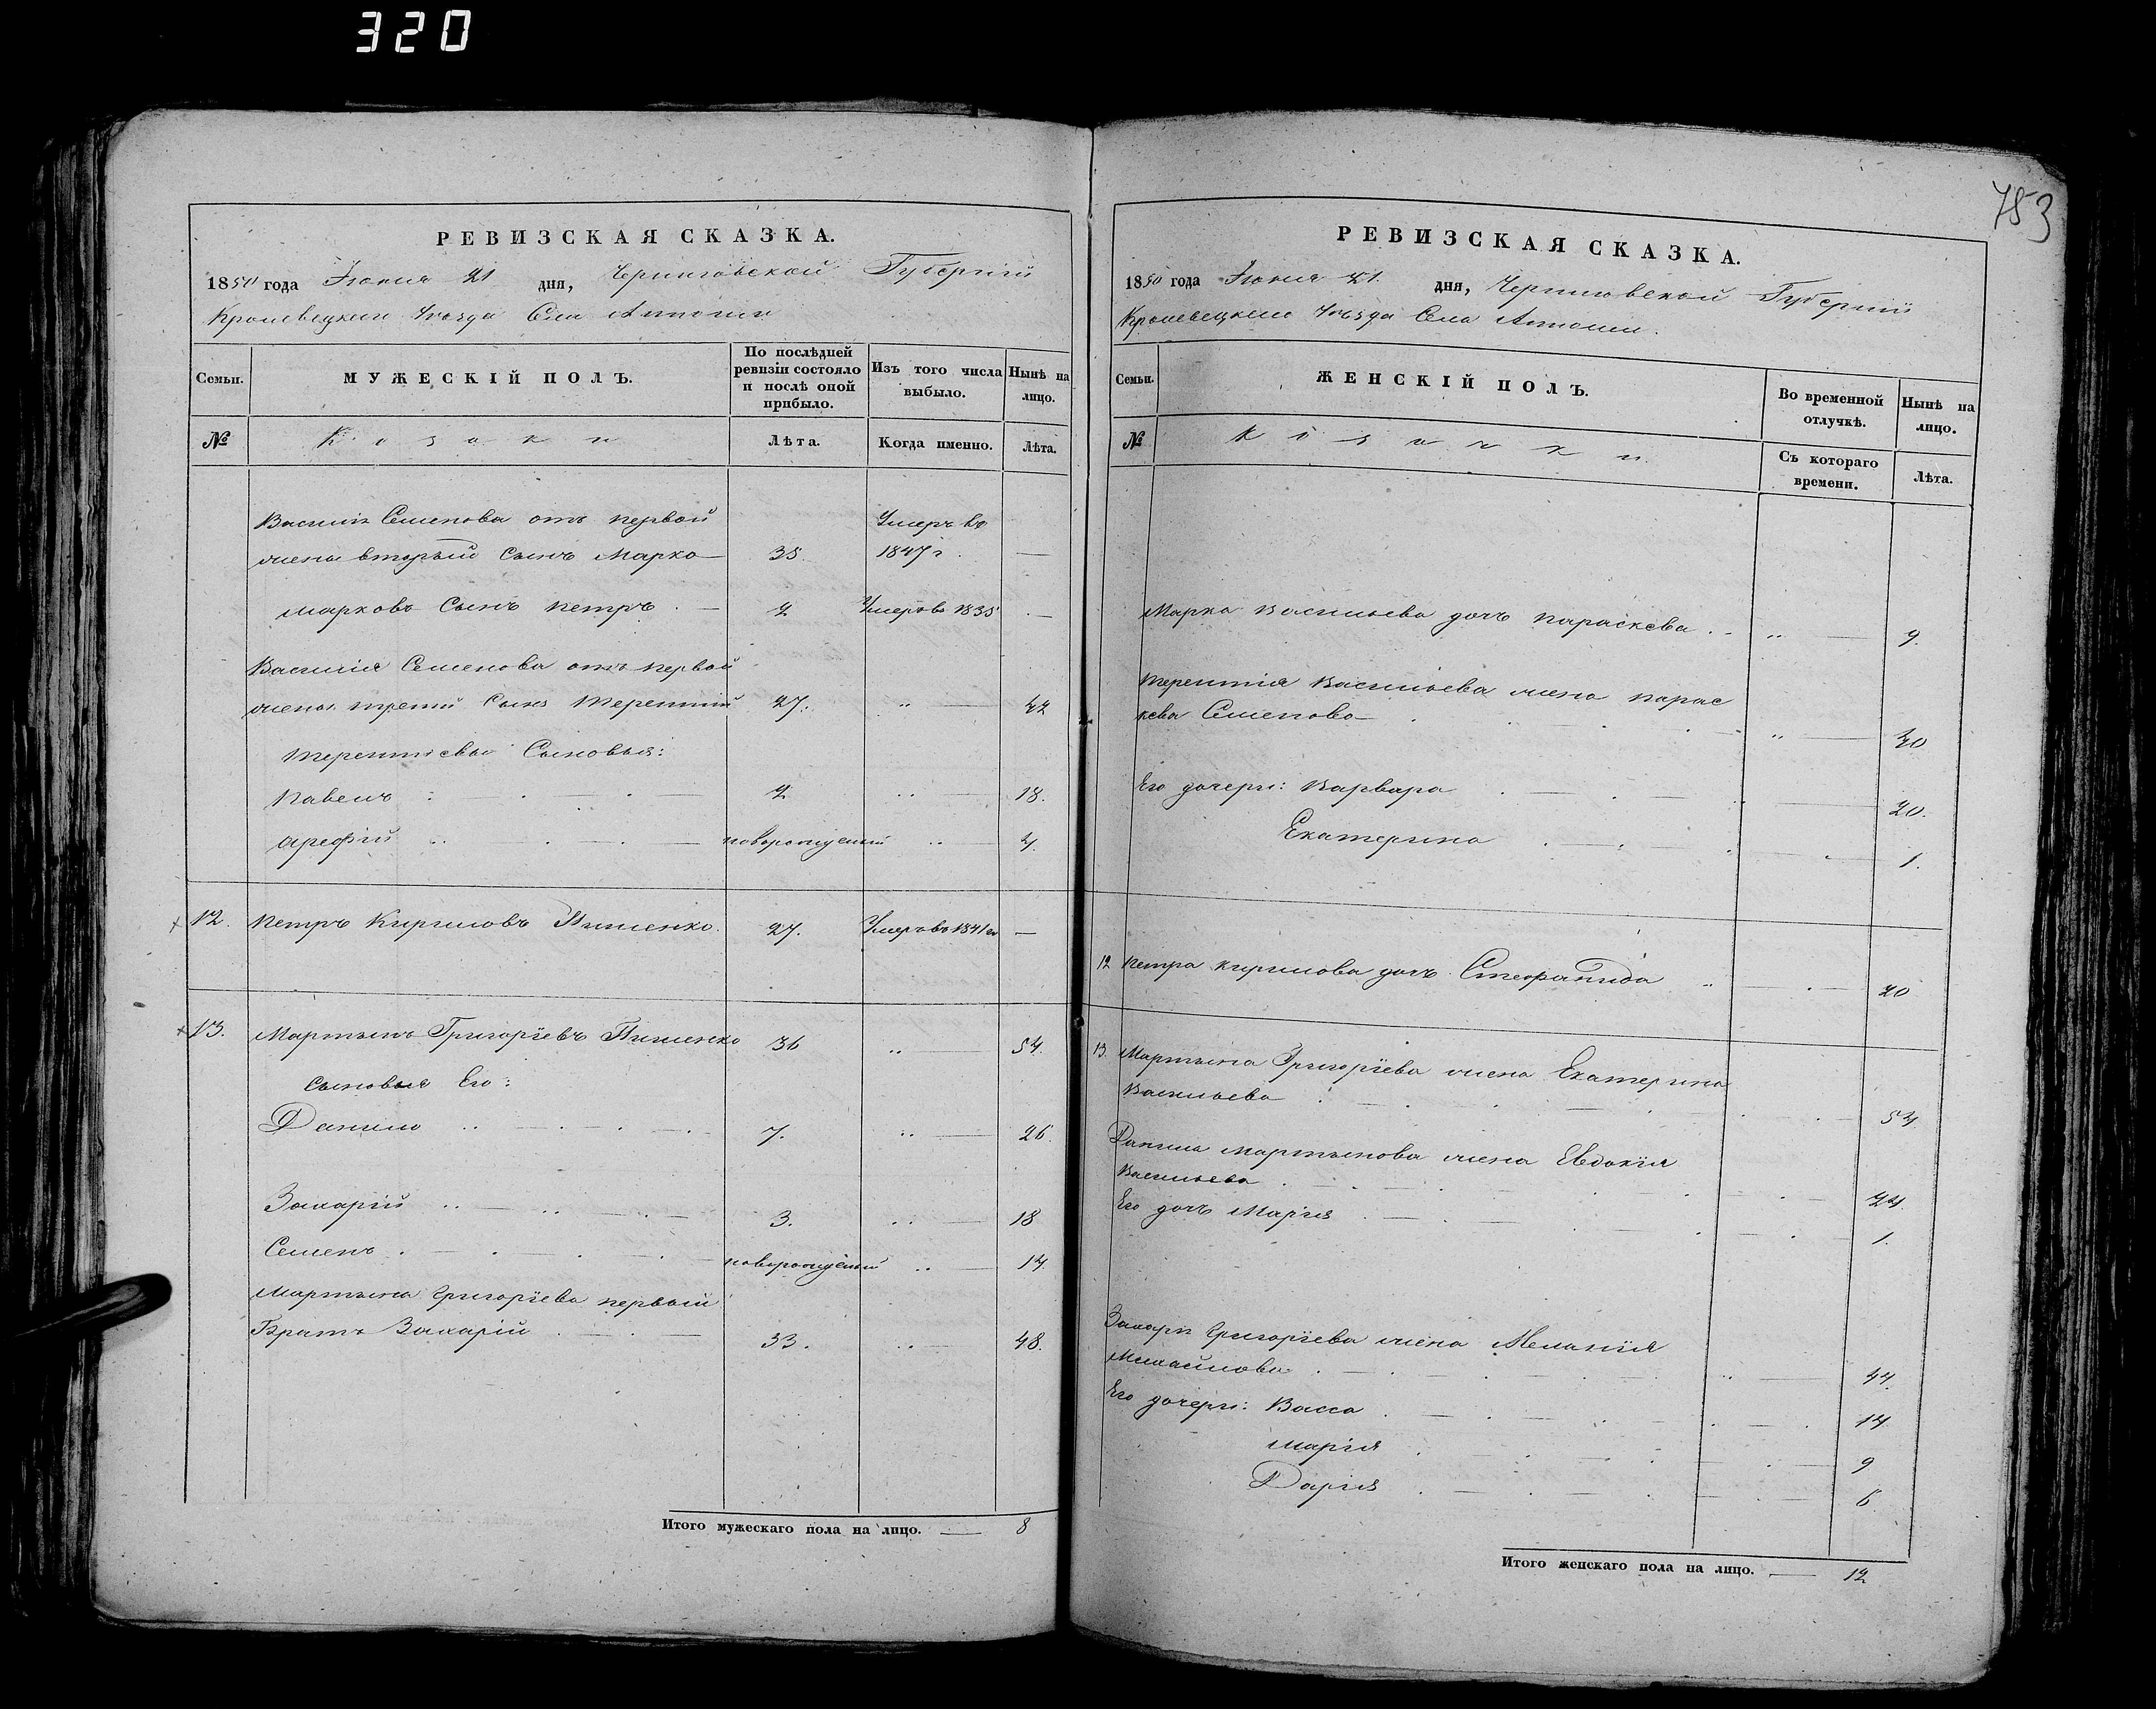 320
753
РЕВИЗСКАЯ СКАЗКА.
1850 года Іюня 21 дня, Черниговской Губерніи
Кролевецкаго Уѣзда Села
МУЖЕСКІЙ ПОЛЪ.
Семьи.
По послѣдней ревизіи состояло и послѣ оной прибыло.
Изъ того числа выбыло.
Нынѣ на лицо.
№
Козаки
Лѣта.
Когда именно.
Лѣта.
Василія Семенова отъ первой Умеръ въ
жены вторый Сынъ Марко 35. 1847 г.
Марковъ Сынъ Петръ 2 Умеръ въ 1835
Василія Семенова отъ первой
жены третій Сынъ Терентій 27. 42
Терентіевы Сыновья:
Павелъ 2 18.
Арефій новорожденый 4.
12. Петръ Кириловъ 27. Умеръ въ 1841 г.
13. Мартынъ Григоріевъ 36 54.
Сыновья Его:
Данило 7. 26.
Захарій 3. 18
Семенъ новорожденый 14.
Мартына Григоріева первый
Братъ Захарій 33. 48.
Итого мужескаго пола на лицо. 8
РЕВИЗСКАЯ СКАЗКА.
1850 года Іюня 21. дня, Черниговской Губерніи
Кролевецкаго Уѣзда Села
Семьи.
ЖЕНСКІЙ ПОЛЪ.
Во временной отлучкѣ.
Нынѣ на лицо.
№
Козачки
Съ котораго времени.
Лѣта.
Марка Васильева дочь Параскева 9.
Терентія Васильева жена Парас
кева Семенова 40
Его дочери: Варвара 20.
Екатерина 1.
12 Петра Кирилова дочь Стефанида 20
13. Мартына Григоріева жена Екатерина
Васильева 54
Данила Мартынова жена Евдокія
Васильева 24
Его дочь Марія 1.
Захарія Григоріева жена Меланія
Михайлова 44
Его дочери: Васса 14
Марія 9
Дарія 6
Итого женскаго пола на лицо. 12